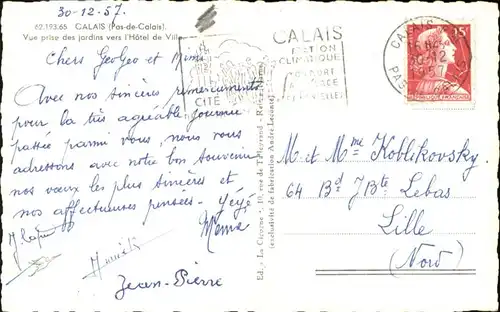 30-12-57.
62.193.65 CALAIS (Pas-de-Calais).
Vue prise des jardins vers l'Hôtel de Ville
Chers GeoGeo et Mimi
Avec nos sincères remerciements
pour la très agréable journée
passée parmi vous, nous vous
adressons avec notre bon souvenir
nos vœux les plus sincères et
nos affectueuses pensées - Yéyé
Mémé
Jean-Pierre
Ed. « La Cigogne », 10, rue de Talleyrand - Reims
(exclusivité de fabrication André Leconte)
CALAIS
STATION
CLIMATIQUE
CITÉ
CALAIS
15F
RÉPUBLIQUE FRANÇAISE
M et Mme Koblikovsky
64 Bd J Bte Lebas
Lille
(Nord)